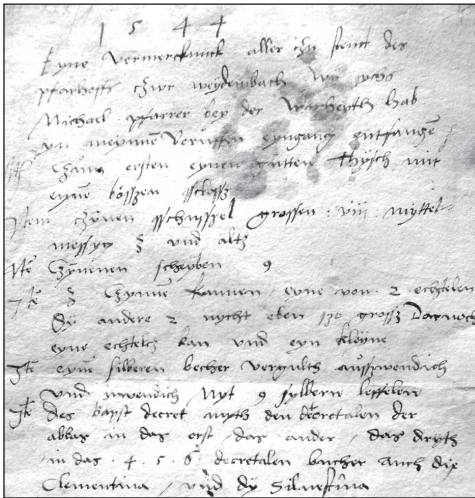 1544
Eyne vermerckunck aller zu stent des
pfarhoffs zwr weydembach wy ichs
Michael pfarrer bey der Warheyth hab
yn meynne eyngang entfange
Czum ersten eynen gutten thysch mit
eyne bosszen schlossz
Item czynen schusszel grossen viii myttel
messyg 3 vnd altz
Ite Czynenen scheyben 9
Ite 3 Czynne kannen eyne von 2 echtelen
Dy andere 2 nycht eben szo grossz Darnoch
eyne echtelch kan vnd eyn kleyne
Ite eyne silberen becher vergults ausswendich
vnd inwendich Myt 9 sylbern leffelen
Ite des bapst decret myth den decretalen der
abbas in das erst das ander das dryth
in das 4 . 5 . 6 decretalen bucher auch die
Clementina / vnd dy Siluestina